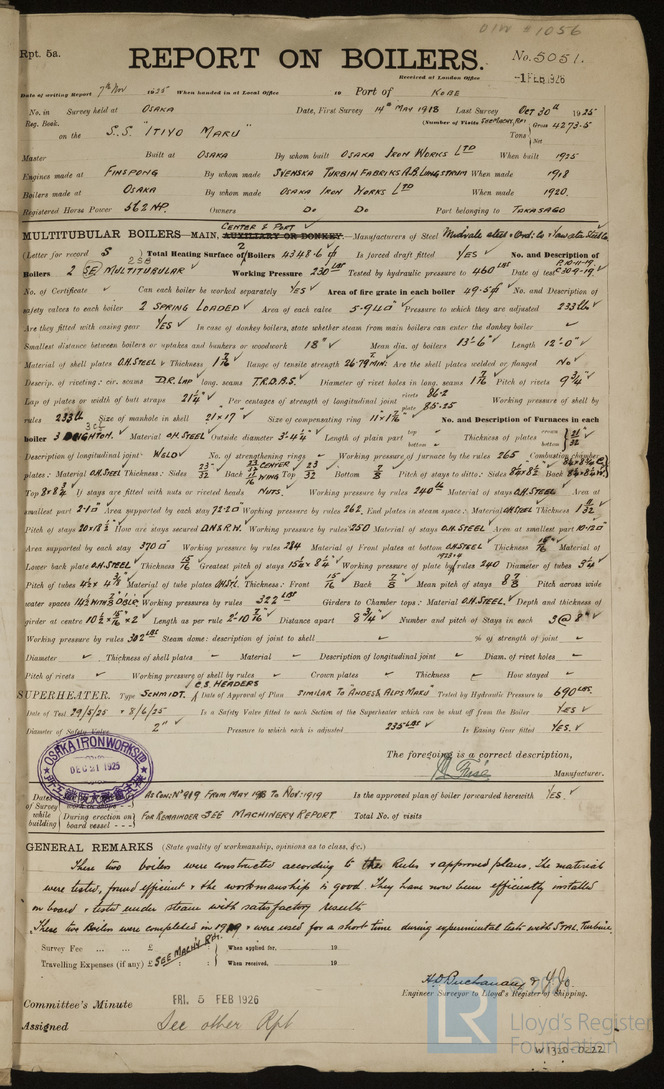 01W #1056
Rpt. 5a.
REPORT ON BOILERS.
No. 5051.
Received at London Office
-1 FEB 1926
Date of writing Report 7th Nov 1925 When handed in at Local Office 19 Port of KOBE
No. in Survey held at OSAKA Date, First Survey 14th MAY 1918 Last Survey OCT 30th 1925
Reg. Book.
(Number of Visits SEE MACHY. RPT
on the S.S. "ITIYO MARU" Tons { Gross 4273.5
Net
Master Built at OSAKA By whom built OSAKA IRON WORKS LTD When built 1925
Engines made at FINSPONG By whom made SVENSKA TURBIN FABRIKS A.B. LJUNGSTRUM When made 1918
Boilers made at OSAKA By whom made OSAKA IRON WORKS LTD When made 1920.
Registered Horse Power 562 NP. Owners Do Do Port belonging to TAKASAGO
CENTER & PORT
MULTITUBULAR BOILERS MAIN, AUXILIARY OR DONKEY.—Manufacturers of Steel Midvale steel & Ord: Co Yawata Steel Co
(Letter for record S) Total Heating Surface of 2 Boilers 4348.6 Is forced draft fitted YES No. and Description of
Boilers 2 SE MULTITUBULAR Working Pressure 230 LBS Tested by hydraulic pressure to 460 LBS Date of test
No. of Certificate Can each boiler be worked separately YES Area of fire grate in each boiler 49.5 No. and Description of
safety valves to each boiler 2 SPRING LOADED Area of each valve 5.940" Pressure to which they are adjusted 233 lbs
Are they fitted with easing gear YES In case of donkey boilers, state whether steam from main boilers can enter the donkey boiler
Smallest distance between boilers or uptakes and bunkers or woodwork 18" Mean dia. of boilers 13'-6" Length 12'-0"
Material of shell plates O.H. STEEL Thickness 1 7/16 Range of tensile strength 26.79 MIN: Are the shell plates welded or flanged No
Descrip. of riveting: cir. seams D.R. LAP long. seams T.R.D.B.S. Diameter of rivet holes in long. seams 1 7/16 Pitch of rivets 9 3/4"
Lap of plates or width of butt straps 21 1/4" Per centages of strength of longitudinal joint rivets 86.2 Working pressure of shell by
plate 85.25
rules 233 lb Size of manhole in shell 21"×17" Size of compensating ring 11"×1 7/16" No. and Description of Furnaces in each
boiler 3 DEIGHTON. Material O.H. STEEL Outside diameter 3'-4 1/4" Length of plain part top Thickness of plates crown 21/32
bottom bottom
Description of longitudinal joint WELD No. of strengthening rings Working pressure of furnace by the rules 265 Combustion chamber
plates: Material O.H. STEEL Thickness: Sides 23/32 Back 23/32 CENTER WING Top 23/32 Bottom 7/8 Pitch of stays to ditto: Sides 8 1/2×8 1/2 Back
Top 8×8 3/4 If stays are fitted with nuts or riveted heads NUTS. Working pressure by rules 240 lb Material of stays O.H. STEEL Area at
smallest part Area supported by each stay Working pressure by rules 262 End plates in steam space: Material O.H. STEEL Thickness
Pitch of stays 20×18 1/2 How are stays secured D.N & R.W. Working pressure by rules 250 Material of stays O.H. STEEL Area at smallest part
Area supported by each stay 370 Working pressure by rules 284 Material of Front plates at bottom O.H. STEEL Thickness 15/16 Material of
Lower back plate O.H. STEEL Thickness 15/16 Greatest pitch of stays Working pressure of plate by rules 240 Diameter of tubes 3 1/4
Pitch of tubes Material of tube plates O.H. St. Thickness: Front 15/16 Back 7/8 Mean pitch of stays 8 7/8 Pitch across wide
water spaces Working pressures by rules 322 LBS Girders to Chamber tops: Material O.H. STEEL. Depth and thickness of
girder at centre Length as per rule 2'-10 7/16 Distance apart 8 3/4" Number and pitch of Stays in each 3 @ 8"
Working pressure by rules 302 LBS Steam dome: description of joint to shell % of strength of joint
Diameter Thickness of shell plates Material Description of longitudinal joint Diam. of rivet holes
Pitch of rivets Working pressure of shell by rules Crown plates Thickness How stayed
C.S. HEADERS
SUPERHEATER. Type SCHMIDT. Date of Approval of Plan SIMILAR TO ANDES & ALPS MARU Tested by Hydraulic Pressure to 690 LBS.
Date of Test 29/5/25 & 8/6/25 Is a Safety Valve fitted to each Section of the Superheater which can be shut off from the Boiler YES
Diameter of Safety Valve 2" Pressure to which each is adjusted 235 LBS Is Easing Gear fitted YES.
OSAKA IRON WORKS LTD
DEC 21 1925
The foregoing is a correct description,
Manufacturer.
Dates of Survey while building
AS CON: No 989 FROM MAY 1918 To NOV: 1919 Is the approved plan of boiler forwarded herewith YES.
During erection on board vessel - - - FOR REMAINDER SEE MACHINERY REPORT Total No. of visits
GENERAL REMARKS (State quality of workmanship, opinions as to class, &c.)
These two boilers were constructed according to the Rules & approved plans. The material
were tested, found efficient & the workmanship is good. They have now been efficiently installed
on board & tested under steam with satisfactory results
These two Boilers were completed in 1919 & were used for a short time during experimental tests with STAL Turbine.
Survey Fee ... ... £ : : When applied for, 19
SEE MACHY RPT.
Travelling Expenses (if any) £ : : When received, 19
H.D. Buchanan & Y. Jo.
Engineer Surveyor to Lloyd's Register of Shipping.
Committee's Minute FRI. 5 FEB 1926
Assigned See other Rpt
© 2020
LR
Lloyd's Register
Foundation
W1320-0222